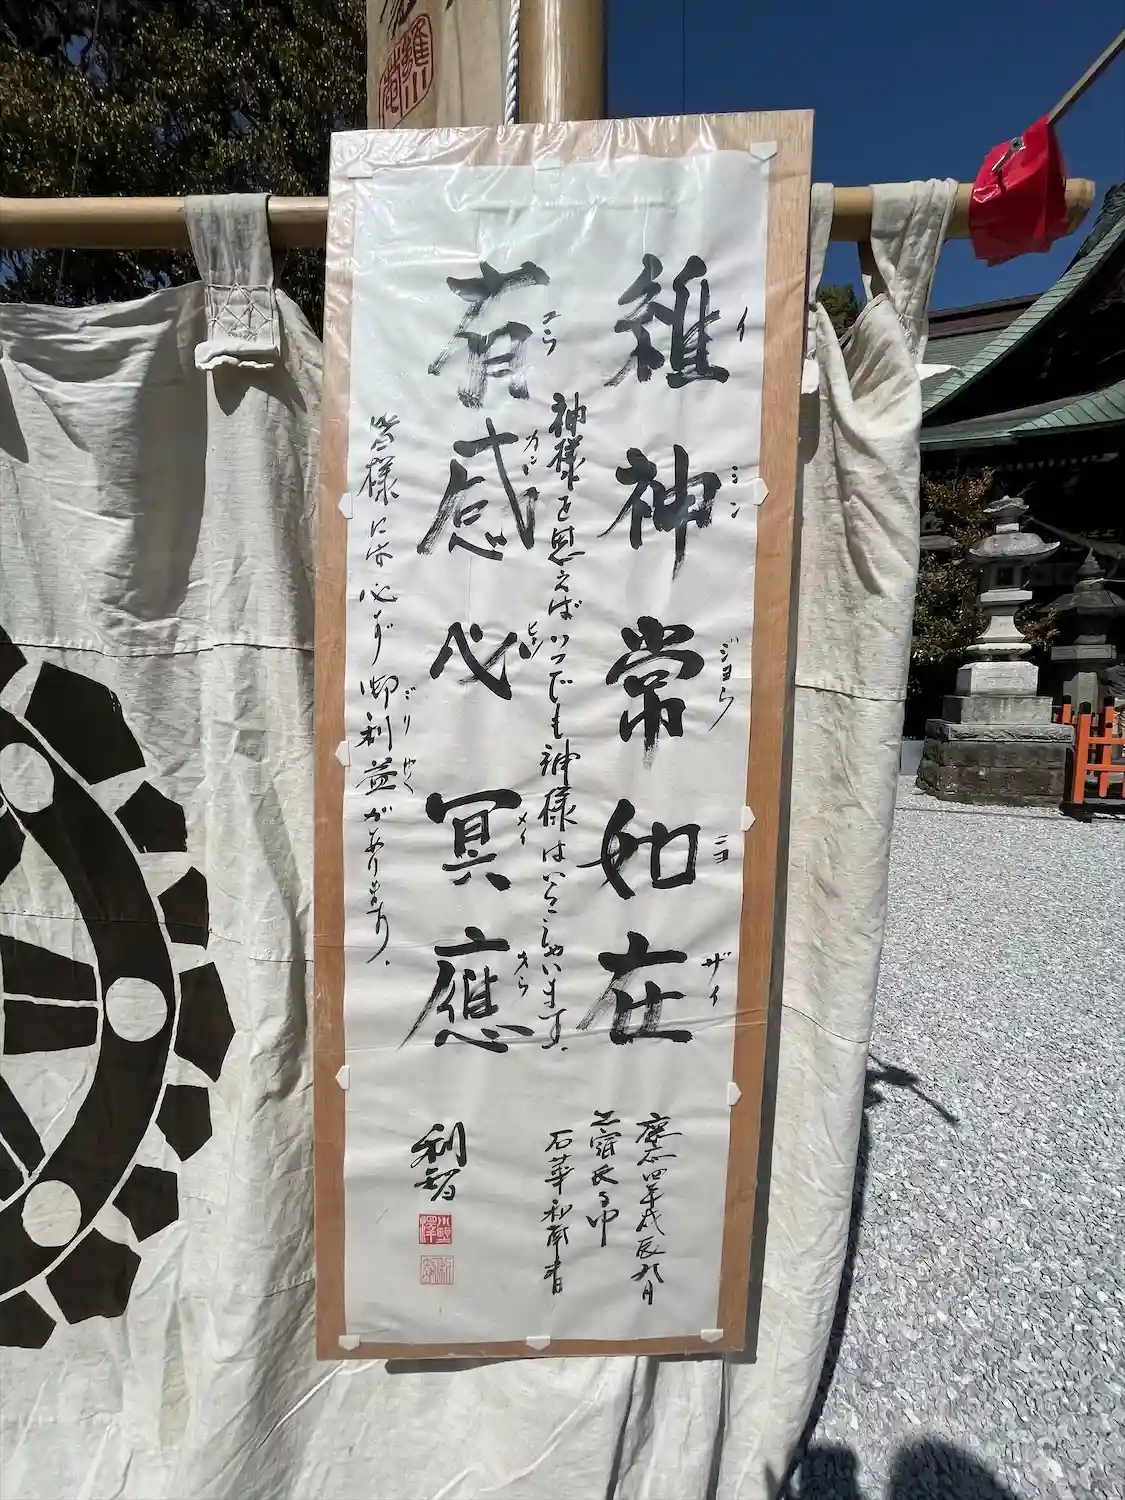 維神常如在
イ シン ジョウ ニョ ザイ
神様を思えばいつでも神様はいらっしゃいます.
有感必冥應
ユウ カン ヒツ メイ オウ
皆様には必ず御利益があります.
ごりやく
慶応四年戊辰九月
石華 書
利智